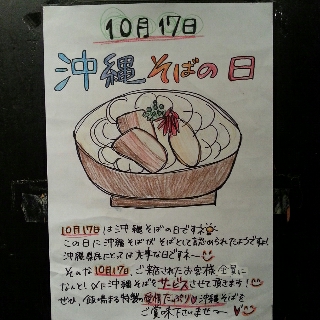 10月17日
沖縄そばの日
10月17日は沖縄そばの日ですネ
この日に沖縄そばがそばとして認められたようですね!
沖縄県民にとっては大事な日ですネ〜
そんな10月17日、ご来店されたお客様全員に
なんと!〆に沖縄そばをサービスさせて頂きます!
ぜひ、飯場まる特製の愛情たっぷり沖縄そばを
ご賞味下さいませ〜